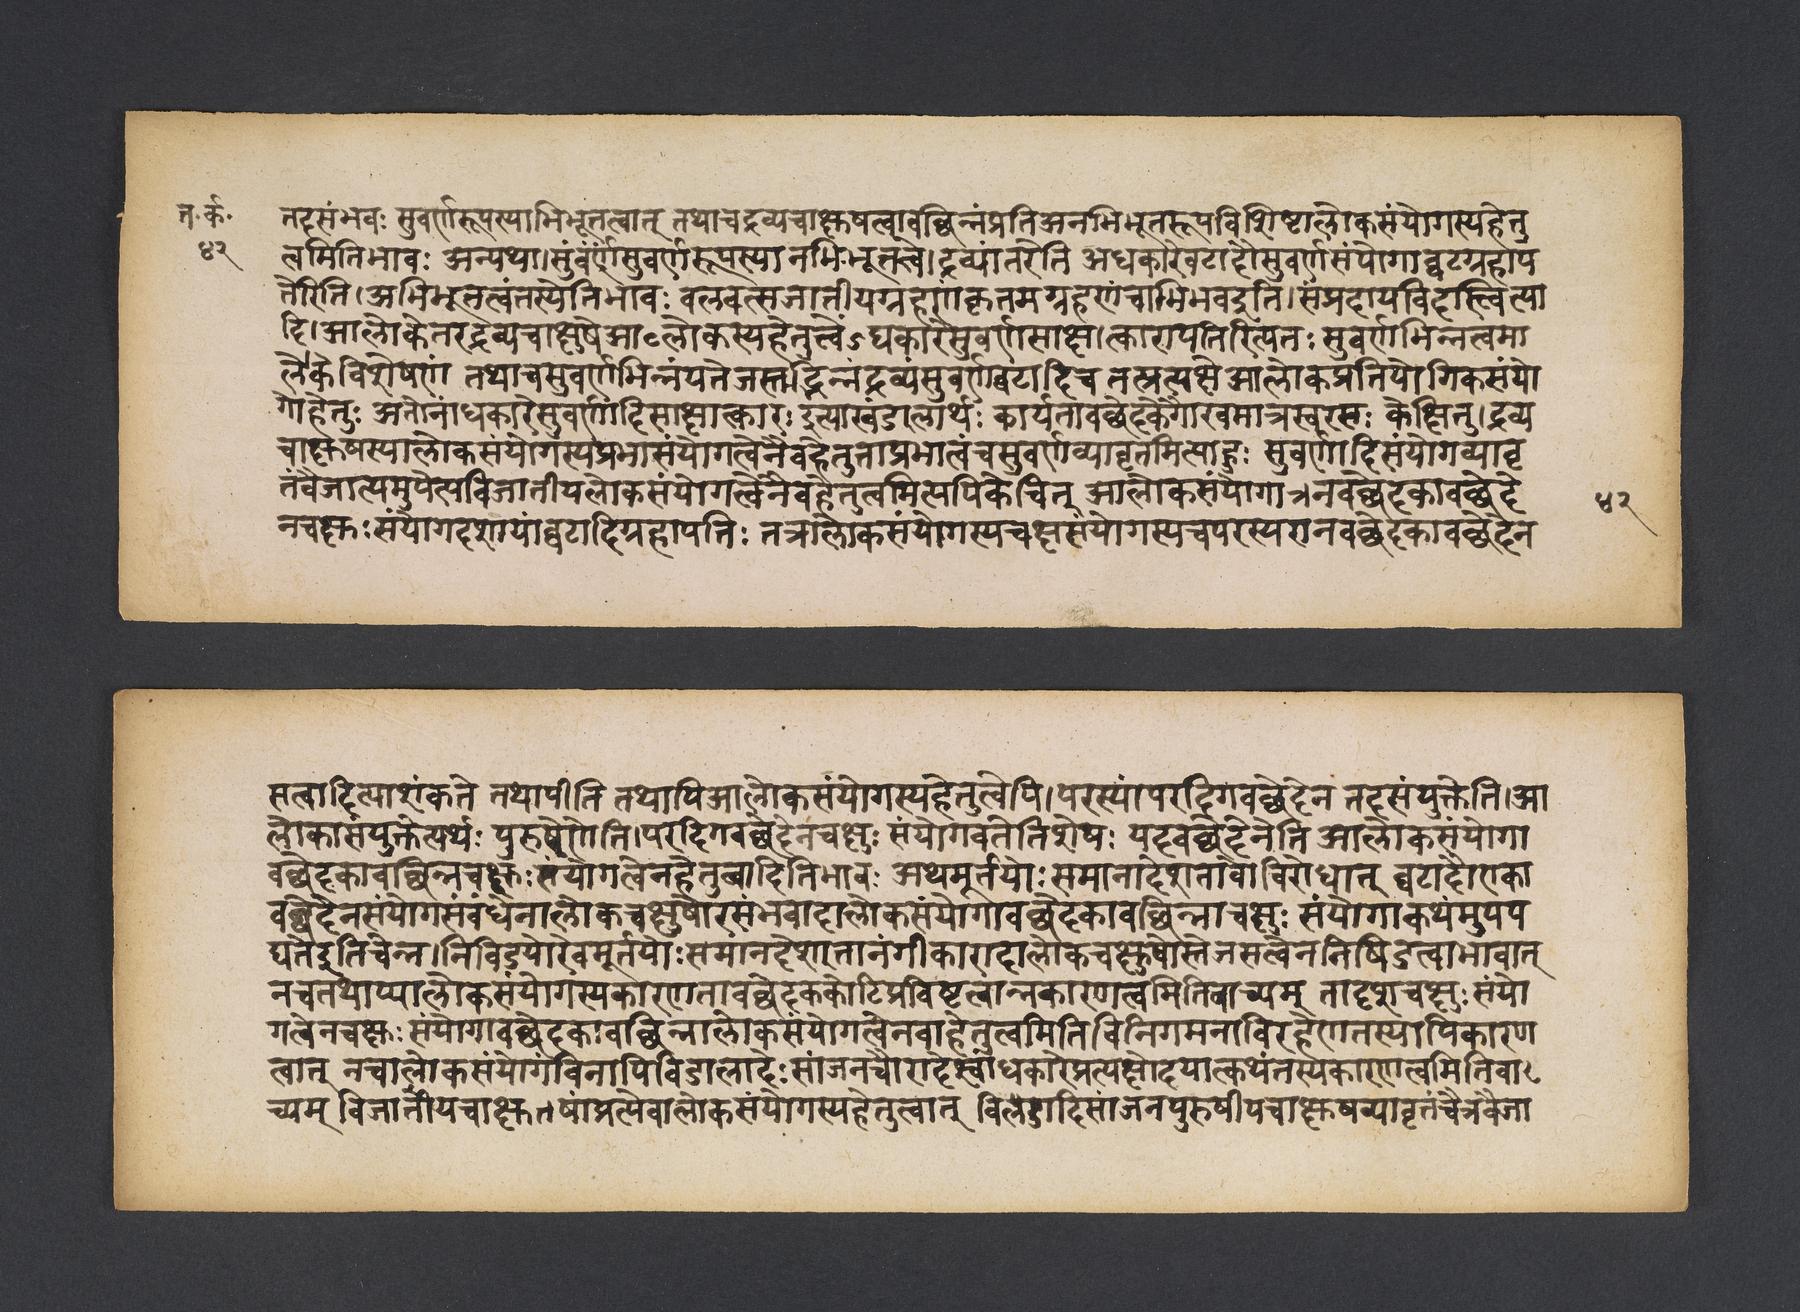 त॰ र्क॰
४२
तदसंभवः सुवर्णरूपस्याभिभूतत्वात् तथाचद्रव्यचाक्षुषत्वावच्छिन्नंप्रतिअनभिभूतरूपविशिष्टालोकसंयोगस्यहेतु
त्वमितिभावः अन्यथा।सुवर्णसुवर्णरूपस्यानभिभूतत्वे।द्रव्यांतरेति अंधकारेघटादौसुवर्णसंयोगाद्घटग्रहाप
त्तेरिति।अभिभूतत्वंतस्येतिभावः वलवत्सजातीयग्रहणकृतमग्रहणंचाभिभवइति।संप्रदायविदस्त्वित्या
दि।आलोकेतरद्रव्यचाक्षुषेआलोकस्यहेतुत्वेंऽधकारेसुवर्णसाक्षात्कारापत्तिरित्यतः सुवर्णभिन्नत्वमा
लोके विशेषणं तथाचसुवर्णभिन्नंयत्तेजस्तद्भिन्नंद्रव्यंसुवर्णघटादिच तत्प्रत्यक्षेआलोकप्रतियोगिकसंयो
गोहेतुः अतोनांधकारेसुवर्णादिसाक्षात्कारः इत्याखंडालार्थः कार्यतावच्छेदकेगौरवमात्रस्वरसः केचित्तु।द्रव्य
चाक्षुषस्यालोकसंयोगस्यप्रभासंयोगत्वेनैवहेतुताप्रभात्वंचसुवर्णव्यावृत्तमित्याहुः सुवर्णादिसंयोगव्यावृ
त्तंवैजात्यमुपेत्यविजातीयलोकसंयोगत्वेनैवहेतुत्वमित्यपिकेचित् आलोकसंयोगानवच्छेदकावच्छेदे
नचक्षुःसंयोगदशायांघटादिग्रहापत्तिः तत्रालोकसंयोगस्यचक्षुसंयोगस्यचपरस्परानवच्छेदकावच्छेदेन
४२
सत्वादित्याशंकते तथापीति तथापिआलोकसंयोगस्यहेतुत्वेपि।परस्यांपरदिगवच्छेदेन तदसंयुक्तेति।आ
लोकासंयुक्तेत्यर्थः पुरुषेणेति।परदिगवच्छेदेनचक्षुः संयोगवतेतिशेषः यदवच्छेदेनेति आलोकसंयोगा
वच्छेदकावच्छिन्नचक्षुःसंयोगत्वेनहेतुत्वादितिभावः अथमूर्तयोःसमानादेशतावाविरोधात् घटादौएका
वच्छेदेनसंयोगसंवंधेनालोकचक्षुषोरसंभवादालोकसंयोगावच्छेदकावच्छिन्नाचक्षुः संयोगाकथंमुपप
द्यतेइतिचेन्न।निविडयोरेवमूर्तयोःसमानदेशतानंगीकारादालोकचक्षुषोस्तेजसत्वेननिविडत्वाभावात्
नचतथाप्यालोकसंयोगस्यकारणतावच्छेदककोटिप्रविष्टत्वान्नकारणत्वमितिवाच्यम् तादृशचक्षुःसंयो
गत्वेनचक्षुः संयोगावच्छेदकावच्छिन्नालोकसंयोगत्वेनवाहेतुत्वमिति विनिगमनाविरहेणतस्यापिकारण
त्वात् नचालोकसंयोगंविनापिविडालादेःसांजनचौरादेश्चांधकारेप्रत्यक्षोदयात्कथंतस्यकारणत्वमितिवा
च्यम् विजातीयचाक्षुषंप्रत्येवालोकसंयोगस्यहेतुत्वात् विलेडादिसांजनपुरुषीयचाक्षुषव्यावृत्तंचैत्रवैजा